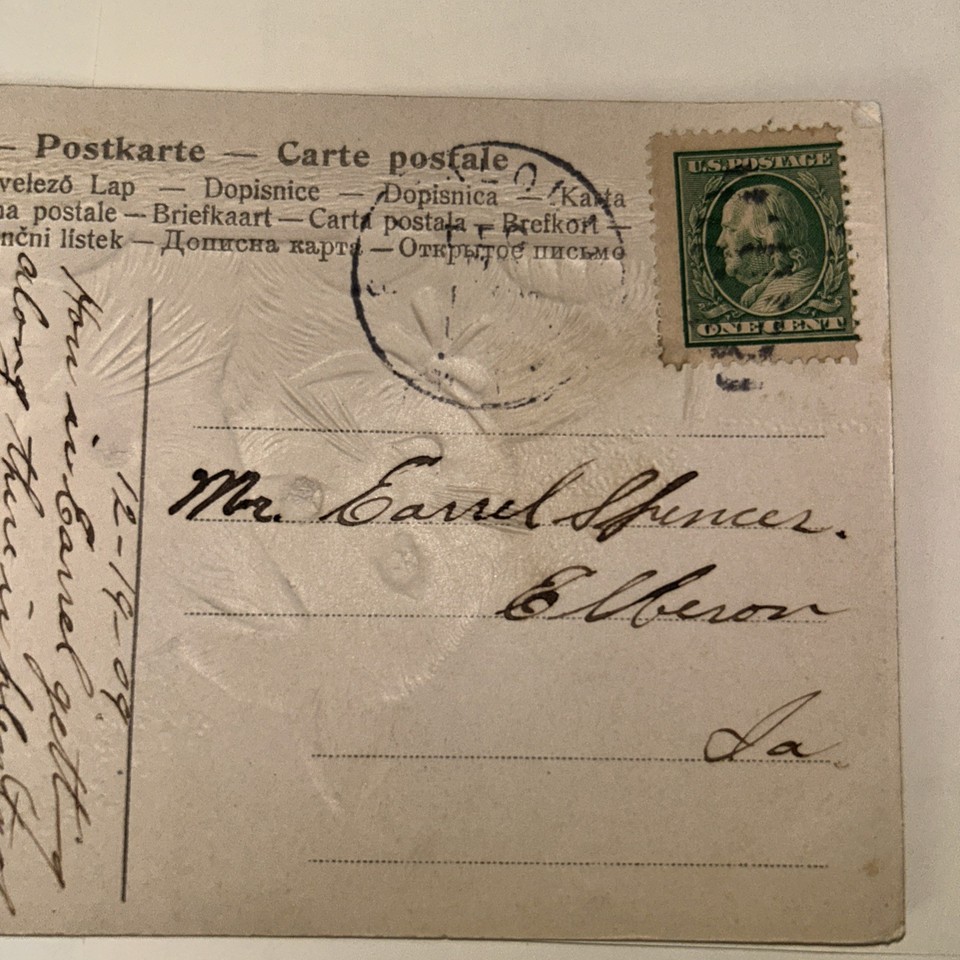 — Postkarte — Carte postale
velező Lap — Dopisnice — Dopisnica — Karta
na postale — Briefkaart — Carta postala — Brefkort —
nční listek — Дописна карта — Открытое письмо
U.S. POSTAGE
ONE CENT
Mr. Earrel Spencer.
Elberon
Ia.
12-19-09
How is Earrel getting
along